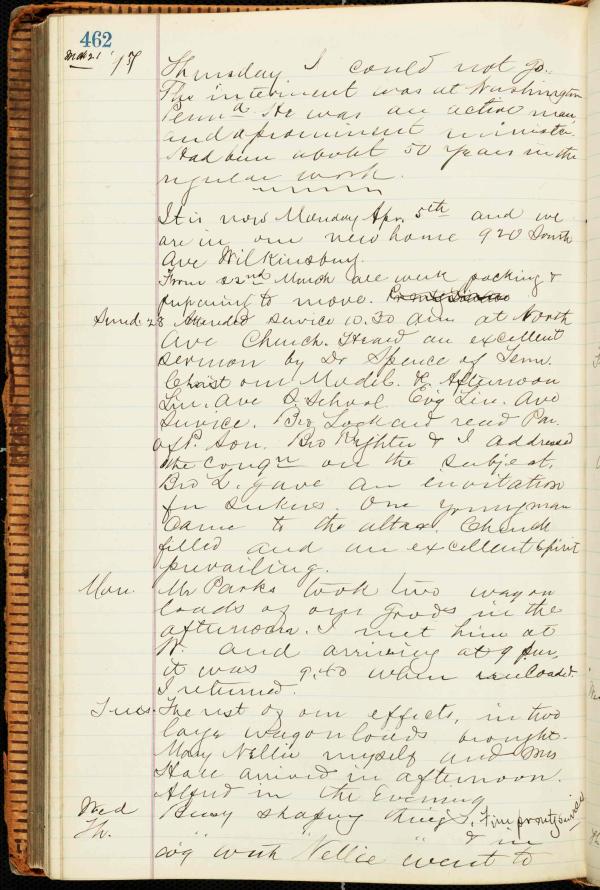 462
Mch 21 '97 Thursday I could not go.
The interment was at Washington
Penna. He was an active man,
and a prominent minister.
Had been about 50 years in the
regular work.
It is now Monday Apr. 5th and we
are in our new home 920 South
Ave Wilkinsburg.
From 22nd March all week packing &
preparing to move.
Sund. 28 Attended service 10.30 a.m. at North
Ave Church. Heard an excellent
sermon by Dr Spence of Tenn.
Christ our Model. Afternoon
Lin. Ave S. School. Ev'g Lin. Ave
Service. Bro Lockard read Par.
of P. Son. Bro Righter & I addressed
the congn on the subject.
Bro L. gave an invitation
for seekers. One young man
came to the altar. Church
filled and an excellent spirit
prevailing.
Mon. Mr Parks took two wagon
loads of our goods in the
afternoon. I met him at
W. and arriving at 9 p.m.
it was 9.40 when unloaded.
I returned.
Tues. The rest of our effects, in two
large wagon loads brought.
Mary Nellie myself and Mrs
Hall arrived in afternoon.
Alfred in the Evening
Wed Busy shaping things,
Th. " " " & in
evg with Nellie went to